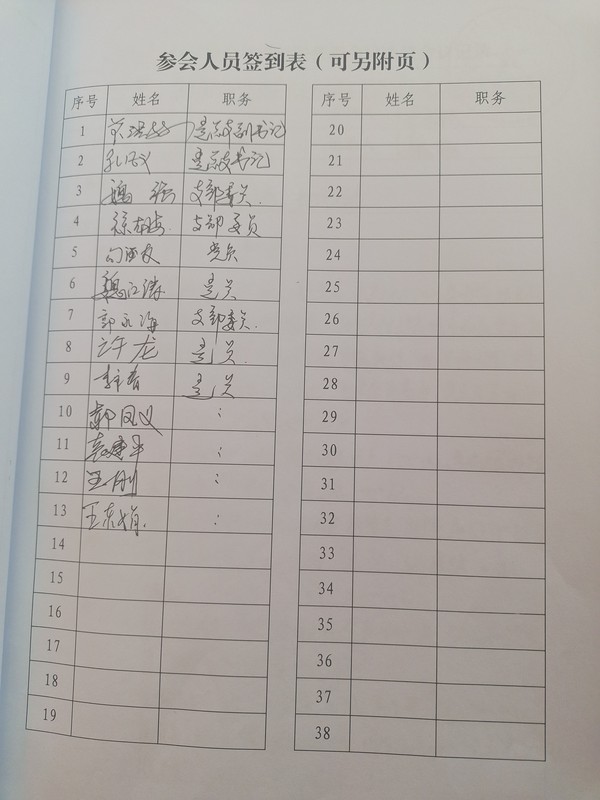 参会人员签到表（可另附页）
序号 姓名 职务
1
2 书记
3 魏 强 支部委员
4 支部委员
5 党员
6 魏江涛 党员
7 郭永海 支部委员
8 许龙 党员
9 党员
10 郭凤义 :
11 :
12 王刚 :
13 王东娟 :
14
15
16
17
18
19
序号 姓名 职务
20
21
22
23
24
25
26
27
28
29
30
31
32
33
34
35
36
37
38